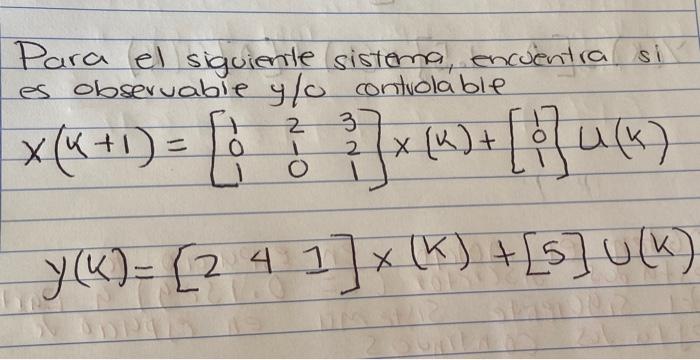 Para el siguiente sistema, encuentra si
es observable y/o controlable
x(k+1) = [1 2 3; 0 1 2; 1 0 1] x(k) + [1; 0; 1] u(k)
y(k) = [2 4 1] x(k) + [5] u(k)